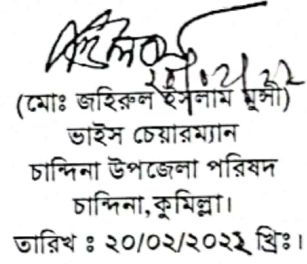 (মোঃ জহিরুল ইসলাম মুন্সী)
ভাইস চেয়ারম্যান
চান্দিনা উপজেলা পরিষদ
চান্দিনা, কুমিল্লা।
তারিখ ঃ ২০/০২/২০২২ খ্রিঃ।